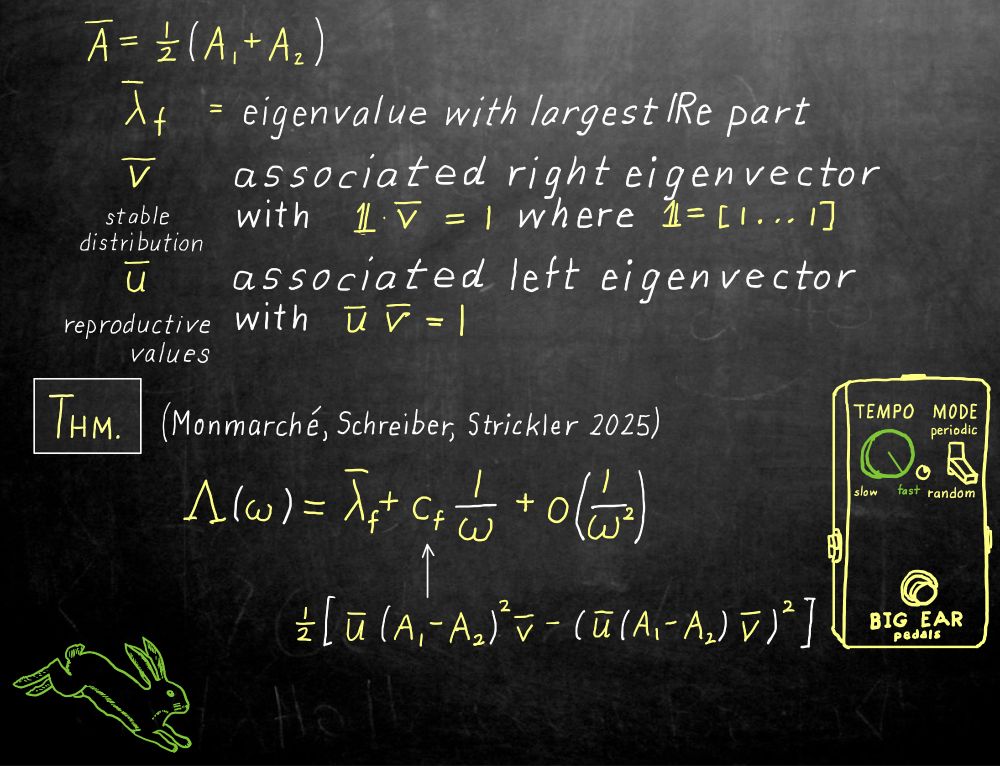 Ā = ½(A₁+A₂)
λ̄_f = eigenvalue with largest ℝe part
v̄ associated right eigenvector
with 𝟙·v̄ = 1 where 𝟙=[1...1]
stable
distribution
ū associated left eigenvector
with ū v̄ = 1
reproductive
values
THM. (Monmarché, Schreiber, Strickler 2025)
Λ(ω) = λ̄_f + c_f 1/ω + o(1/ω²)
½[ū(A₁-A₂)²v̄ - (ū(A₁-A₂)v̄)²]
TEMPO MODE
periodic
slow fast random
BIG EAR
pedals